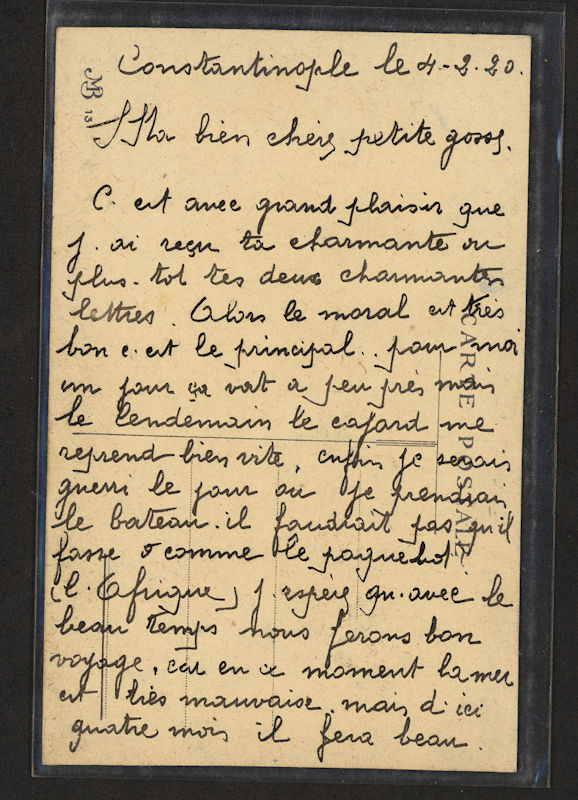 Constantinople le 4-2.20.
MB
13
Ma bien chère petite gosse.
C. est avec grand plaisir que
j. ai reçu ta charmante ou
plus-tot tes deux charmantes
lettres. Alors le moral est très
bon c. est le principal.. pour moi
un jour ça vat a peu près mais
le lendemain le cafard me
reprend bien vite, enfin je serais
guerri le jour ou je prendrais
le bateau. il faudrait pas qu'il
fasse comme le paquebot
(l. Afrique) j. espère qu. avec le
beau temps nous ferons bon
voyage, car en ce moment la mer
est très mauvaise, mais d'ici
quatre mois il fera beau.
CARTE POSTALE